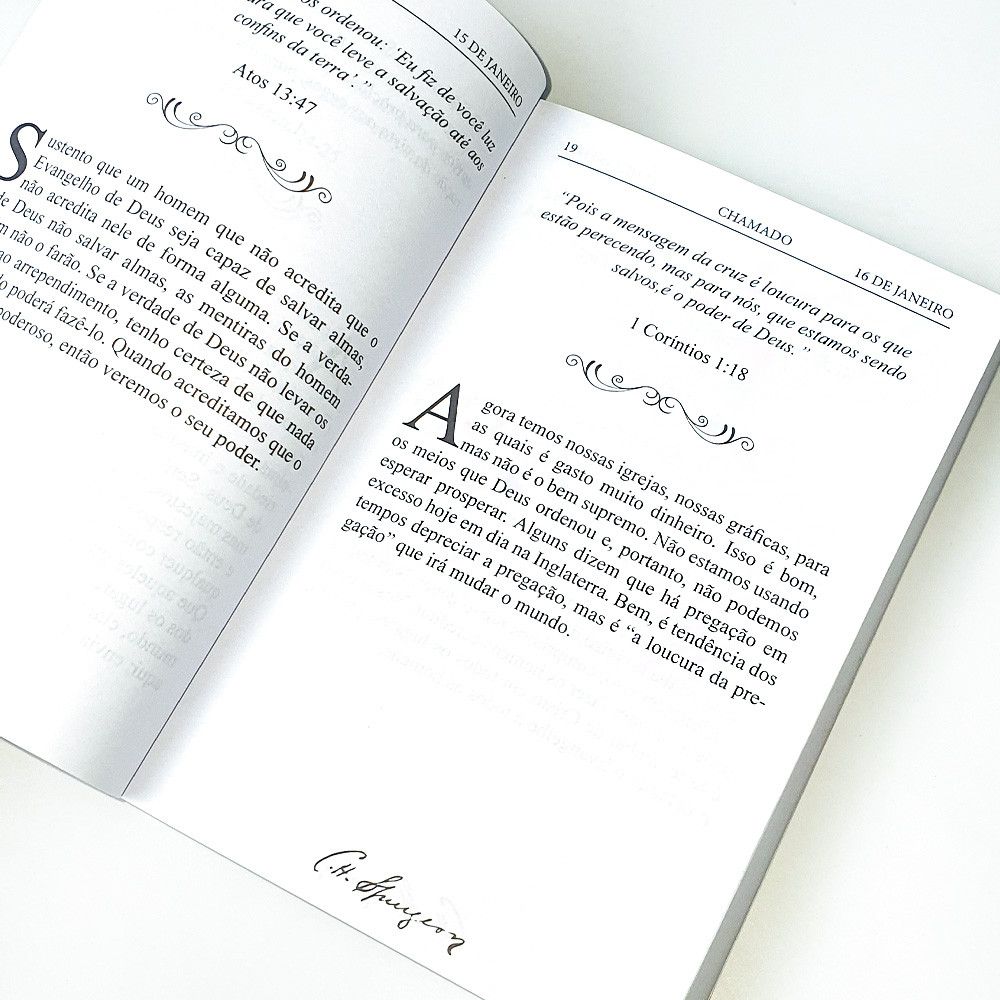 15 DE JANEIRO
os ordenou: ‘Eu fiz de você luz
para que você leve a salvação até aos
confins da terra’.”
Atos 13:47
Sustento que um homem que não acredita que o
Evangelho de Deus seja capaz de salvar almas,
não acredita nele de forma alguma. Se a verda-
de Deus não salvar almas, as mentiras do homem
não o farão. Se a verdade de Deus não levar os
ao arrependimento, tenho certeza de que nada
poderá fazê-lo. Quando acreditamos que o
poderoso, então veremos o seu poder.
19
CHAMADO
16 DE JANEIRO
“Pois a mensagem da cruz é loucura para os que
estão perecendo, mas para nós, que estamos sendo
salvos,é o poder de Deus. ”
1 Coríntios 1:18
Agora temos nossas igrejas, nossas gráficas, para
as quais é gasto muito dinheiro. Isso é bom,
mas não é o bem supremo. Não estamos usando
os meios que Deus ordenou e, portanto, não podemos
esperar prosperar. Alguns dizem que há pregação em
excesso hoje em dia na Inglaterra. Bem, é tendência dos
tempos depreciar a pregação, mas é “a loucura da pre-
gação” que irá mudar o mundo.
C.H. Spurgeon